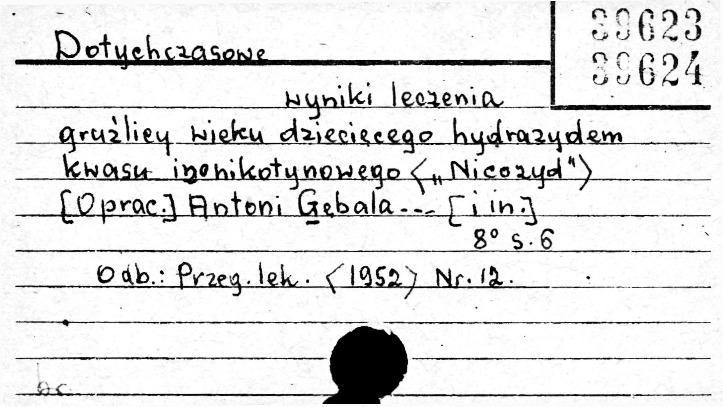 39623
39624
Dotychczasowe
wyniki leczenia
gruźlicy wieku dziecięcego hydrazydem
kwasu izonikotynowego <„Nicozyd">
[Oprac.] Antoni Gębala... [i in.]
8° s. 6
Odb.: Przeg. lek. <1952> Nr. 12.